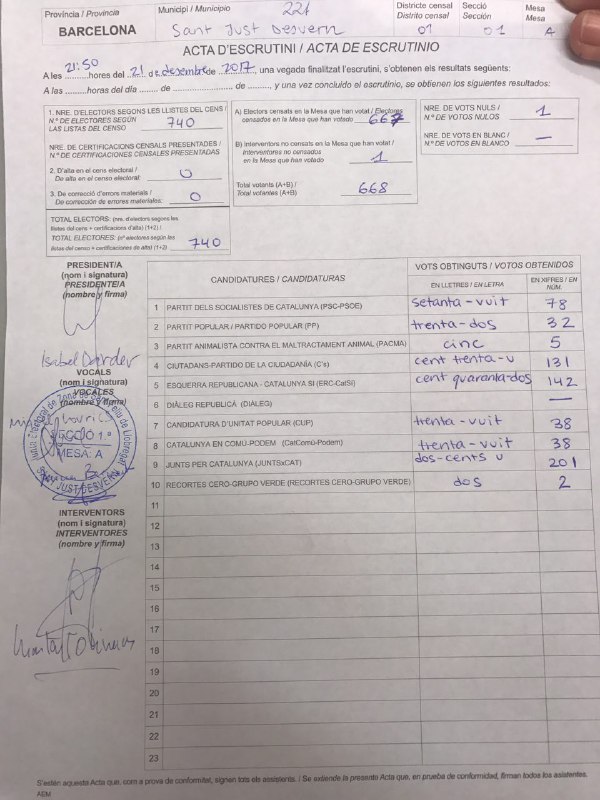 Província / Provincia
BARCELONA
Municipi / Municipio 221
Sant Just Desvern
Districte censal
Distrito censal
01
Secció
Sección
01
Mesa
Mesa
A
ACTA D'ESCRUTINI / ACTA DE ESCRUTINIO
A les 21:50 hores del 21 de desembre de 2017, una vegada finalitzat l'escrutini, s'obtenen els resultats següents:
A las ........ horas del día ........ de ........ de ........, y una vez concluido el escrutinio, se obtienen los siguientes resultados:
1. NRE. D'ELECTORS SEGONS LES LLISTES DEL CENS /
N.º DE ELECTORES SEGÚN
LAS LISTAS DEL CENSO 740
NRE. DE CERTIFICACIONS CENSALS PRESENTADES /
N.º DE CERTIFICACIONES CENSALES PRESENTADAS
2. D'alta en el cens electoral /
De alta en el censo electoral: 0
3. De correcció d'errors materials /
De corrección de errores materiales: 0
TOTAL ELECTORS: (nre. d'electors segons les
llistes del cens + certificacions d'alta) (1+2) /
TOTAL ELECTORES: (nº electores según las
listas del censo + certificaciones de alta) (1+2) 740
A) Electors censats en la Mesa que han votat / Electores
censados en la Mesa que han votado 667
B) Interventors no censats en la Mesa que han votat /
Interventores no censados
en la Mesa que han votado 1
Total votants (A+B) /
Total votantes (A+B) 668
NRE. DE VOTS NULS /
N.º DE VOTOS NULOS 1
NRE. DE VOTS EN BLANC /
N.º DE VOTOS EN BLANCO —
PRESIDENT/A
(nom i signatura)
PRESIDENTE/A
(nombre y firma)
Isabel
VOCALS
(nom i signatura)
VOCALES
(nombre y firma)
SECCIÓ 1ª
MESA: A
SANT JUST DESVERN
INTERVENTORS
(nom i signatura)
INTERVENTORES
(nombre y firma)
CANDIDATURES / CANDIDATURAS
VOTS OBTINGUTS / VOTOS OBTENIDOS
EN LLETRES / EN LETRA
EN XIFRES / EN NÚM.
1 PARTIT DELS SOCIALISTES DE CATALUNYA (PSC-PSOE) setanta-vuit 78
2 PARTIT POPULAR / PARTIDO POPULAR (PP) trenta-dos 32
3 PARTIT ANIMALISTA CONTRA EL MALTRACTAMENT ANIMAL (PACMA) cinc 5
4 CIUTADANS-PARTIDO DE LA CIUDADANÍA (C's) cent trenta-u 131
5 ESQUERRA REPUBLICANA - CATALUNYA SÍ (ERC-CatSí) cent quaranta-dos 142
6 DIÀLEG REPUBLICÀ (DIÀLEG) —
7 CANDIDATURA D'UNITAT POPULAR (CUP) trenta-vuit 38
8 CATALUNYA EN COMÚ-PODEM (CatComú-Podem) trenta-vuit 38
9 JUNTS PER CATALUNYA (JUNTSxCAT) dos-cents u 201
10 RECORTES CERO-GRUPO VERDE (RECORTES CERO-GRUPO VERDE) dos 2
11
12
13
14
15
16
17
18
19
20
21
22
23
S'estén aquesta Acta que, com a prova de conformitat, signen tots els assistents. / Se extiende la presente Acta que, en prueba de conformidad, firman todos los asistentes.
AEM